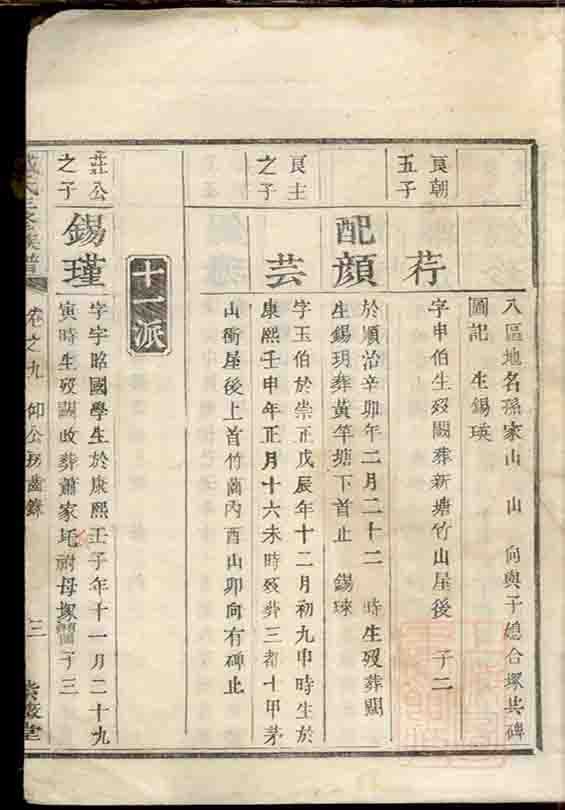 八區地名孫家山　山　向與子總合塚共碑
圖記　生錫瑛
良朝
五子
荇
字申伯生歿闕葬新塘竹山屋後　子二
配顏
於順治辛卯年二月二十二　時生歿葬闕
生錫玥葬黃竿塘下首止　錫琜
良士
之子
芸
字玉伯於崇正戊辰年十二月初九申時生於
康熙壬申年正月十六未時歿葬三都十甲茅
山衝屋後上首竹啇內酉山卯向有碑止
十一派
莊公
之子
錫瑾
字字昭國學生於康熙壬子年十一月二十九
寅時生歿闕政葬蕭家坵祔母塚　子三
氏三修族譜
卷之九　仰公房齒錄
三
紫薇堂